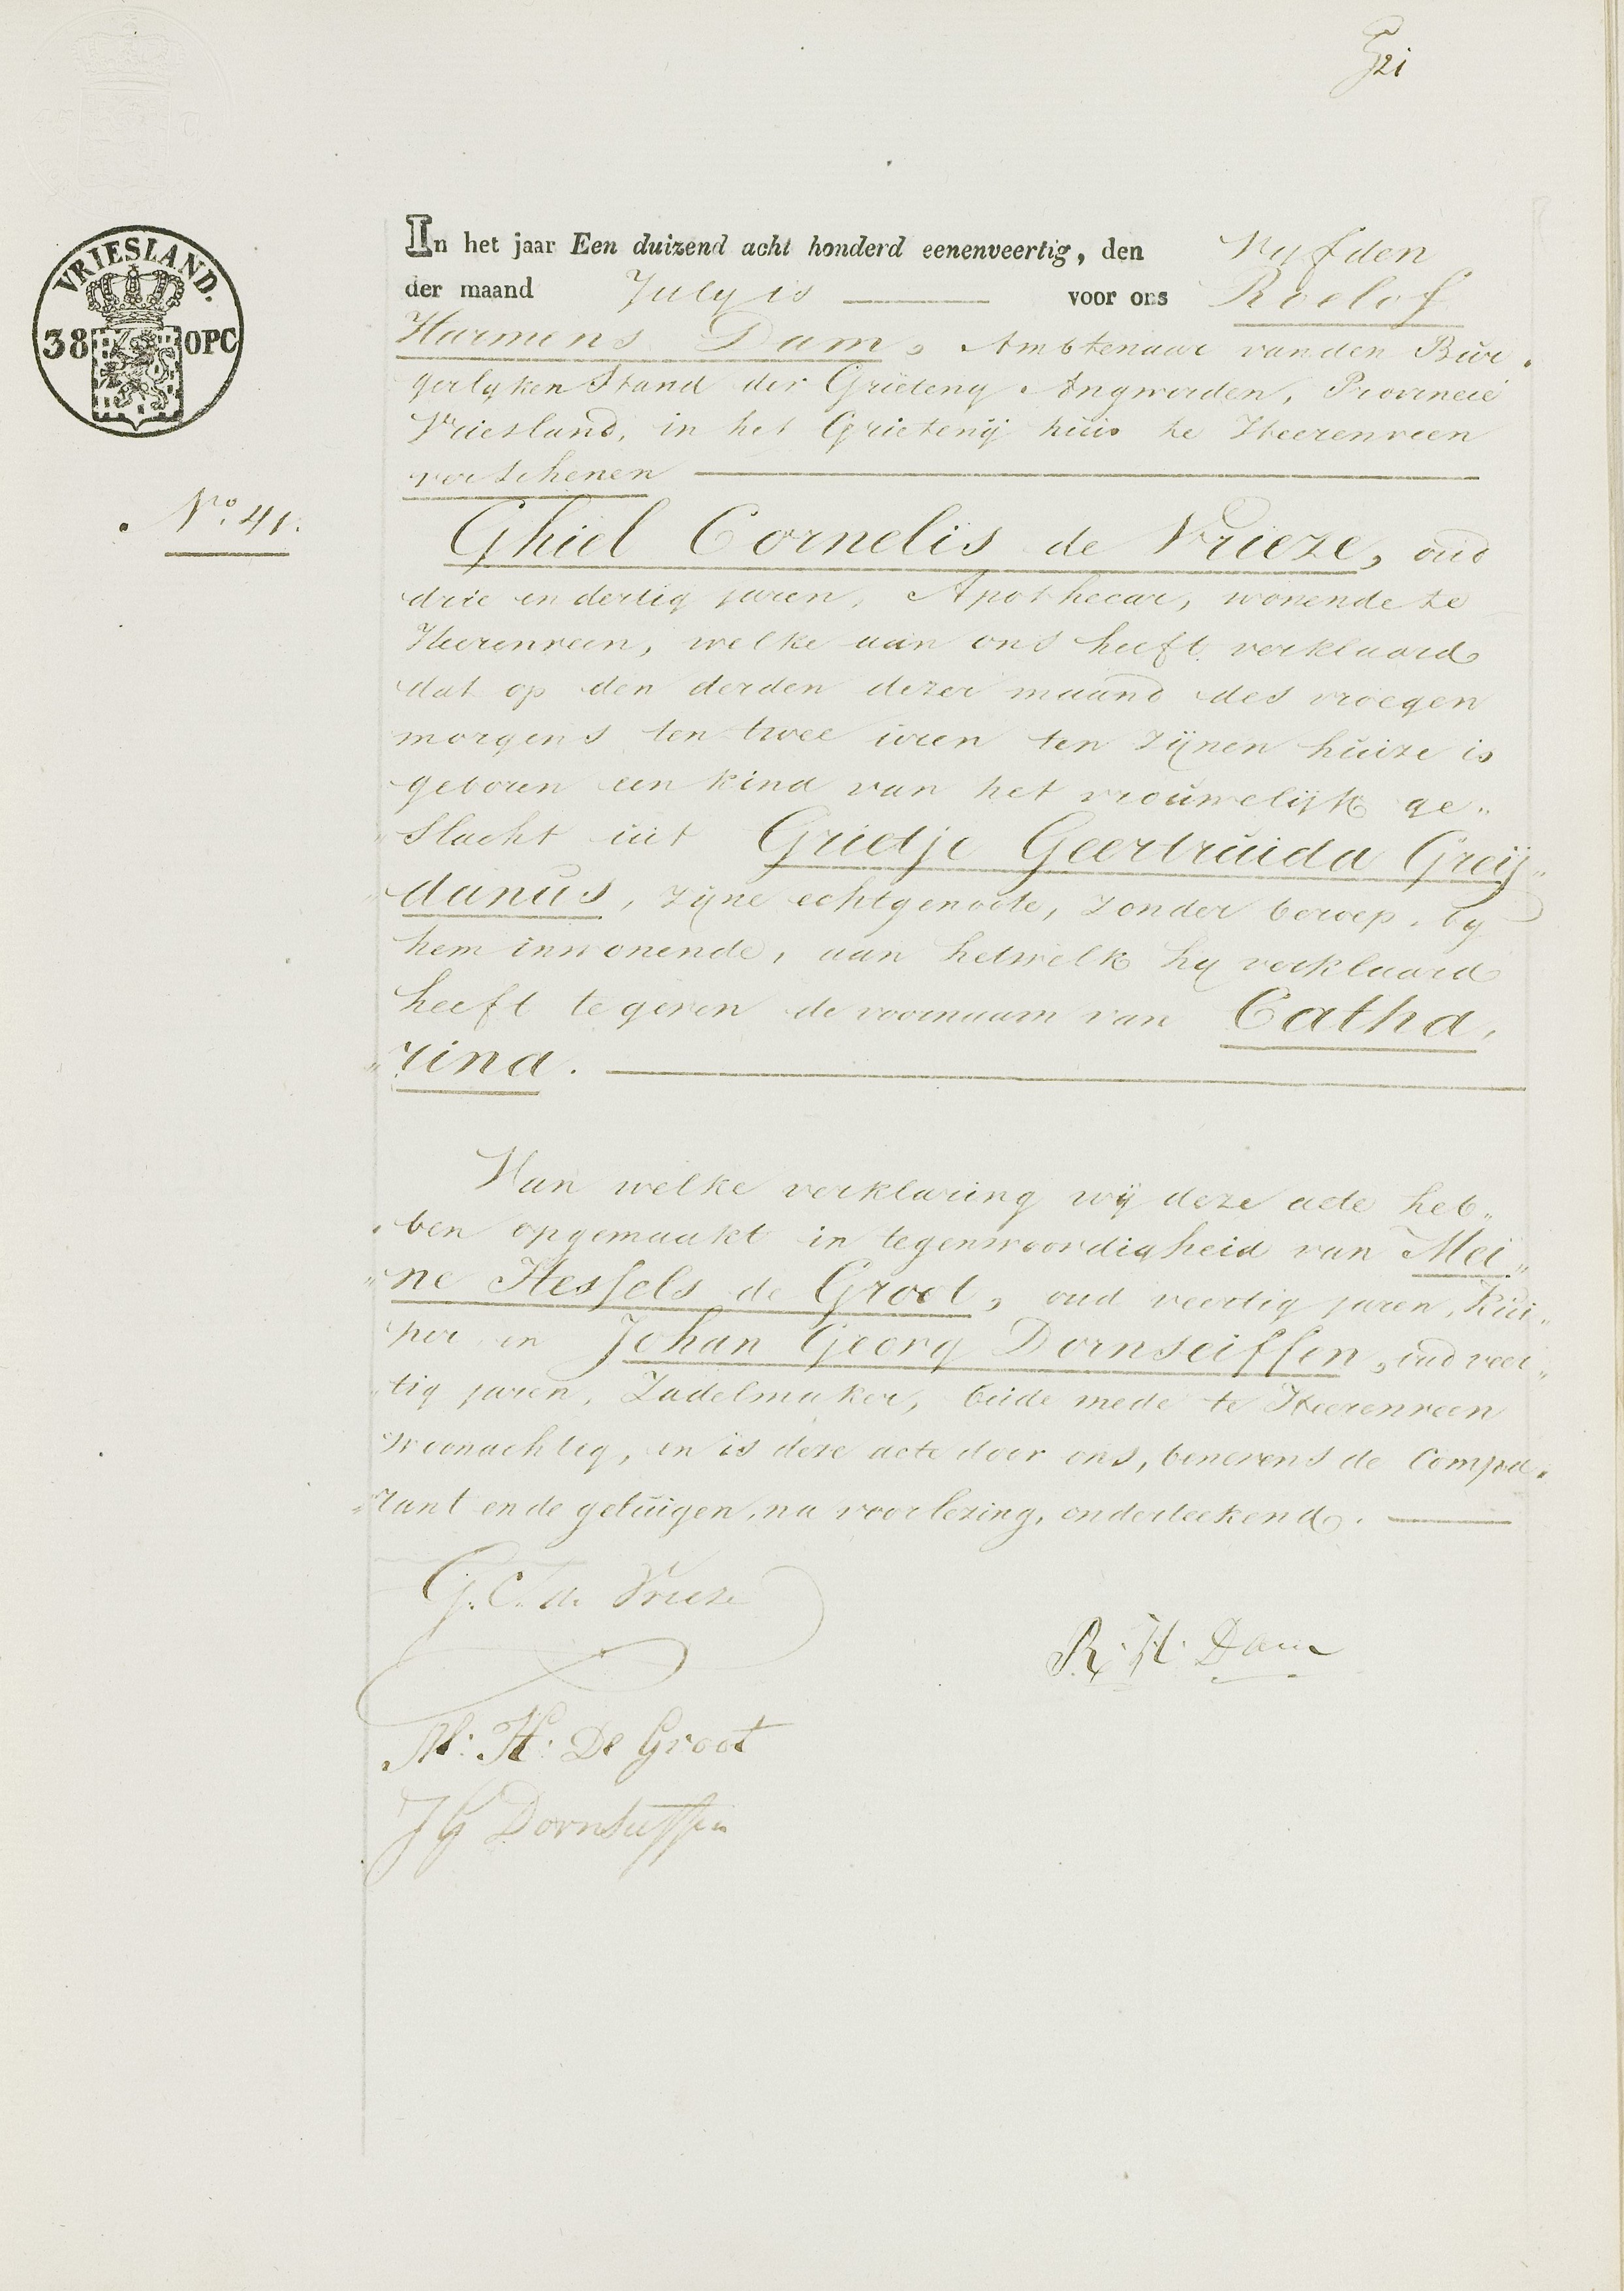 21
VRIESLAND.
38 OPC
In het jaar Een duizend acht honderd eenenveertig, den Vyfden
der maand July is voor ons Roelof
Harmens Dam, Ambtenaar van den Bur„
gerlyken Stand der Grieteny Ængwirden, Provincie
Vriesland, in het Grietenij huis te Heerenveen
verschenen
No. 41.
Ghiel Cornelis de Vrieze, oud
drie en dertig jaren, Apothecar, wonende te
Heerenveen, welke aan ons heeft verklaard
dat op den derden dezer maand des vroegen
morgens ten twee uren ten zijnen huize is
geboren een kind van het vrouwelijk ge„
„slacht uit Grietje Geertruida Greij„
„danus, zijne echtgenoote, zonder beroep, by
hem inwonende, aan hetwelk hy verklaard
heeft te geven de voornaam van Catha„
„rina.
Van welke verklaring wij deze acte heb„
„ben opgemaakt in tegenwoordigheid van Mei„
„ne Hessels de Groot, oud veertig jaren, Kui„
„per en Johan Georg Dornseiffen, oud veer„
„tig jaren, Zadelmaker, beide mede te Heerenveen
woonachtig, en is deze acte door ons, benevens de Compa„
„rant en de getuigen, na voorlezing, onderteekend.
G. C. de Vrieze
R. H. Dam
M: H: De Groot
J G Dornseiffen